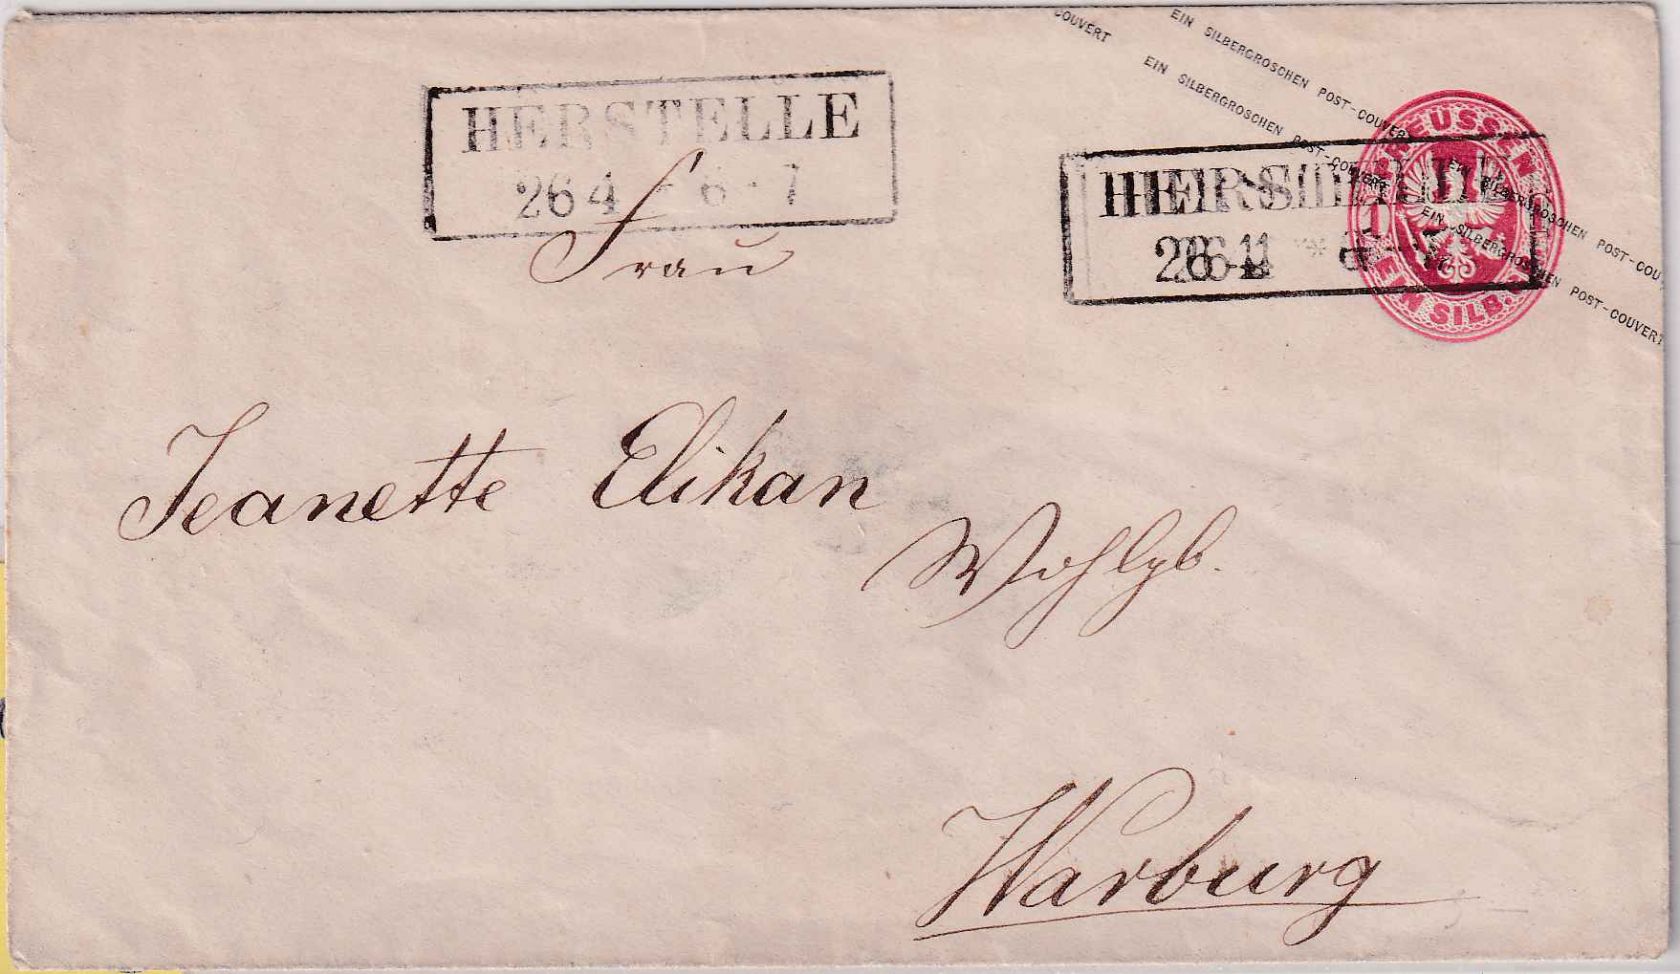 COUVERT
EIN SILBERGROSCHEN POST-COUVERT EIN SILBERGROSCHEN POST-COU
EIN SILBERGROSCHEN POST-COUVERT EIN SILBERGROSCHEN POST-COUVERT
HERSTELLE
26 4 - 6 - 7
PREUSSEN
1
EIN SILB.
Frau
Jeanette Elikan
Wohlgb.
Warburg